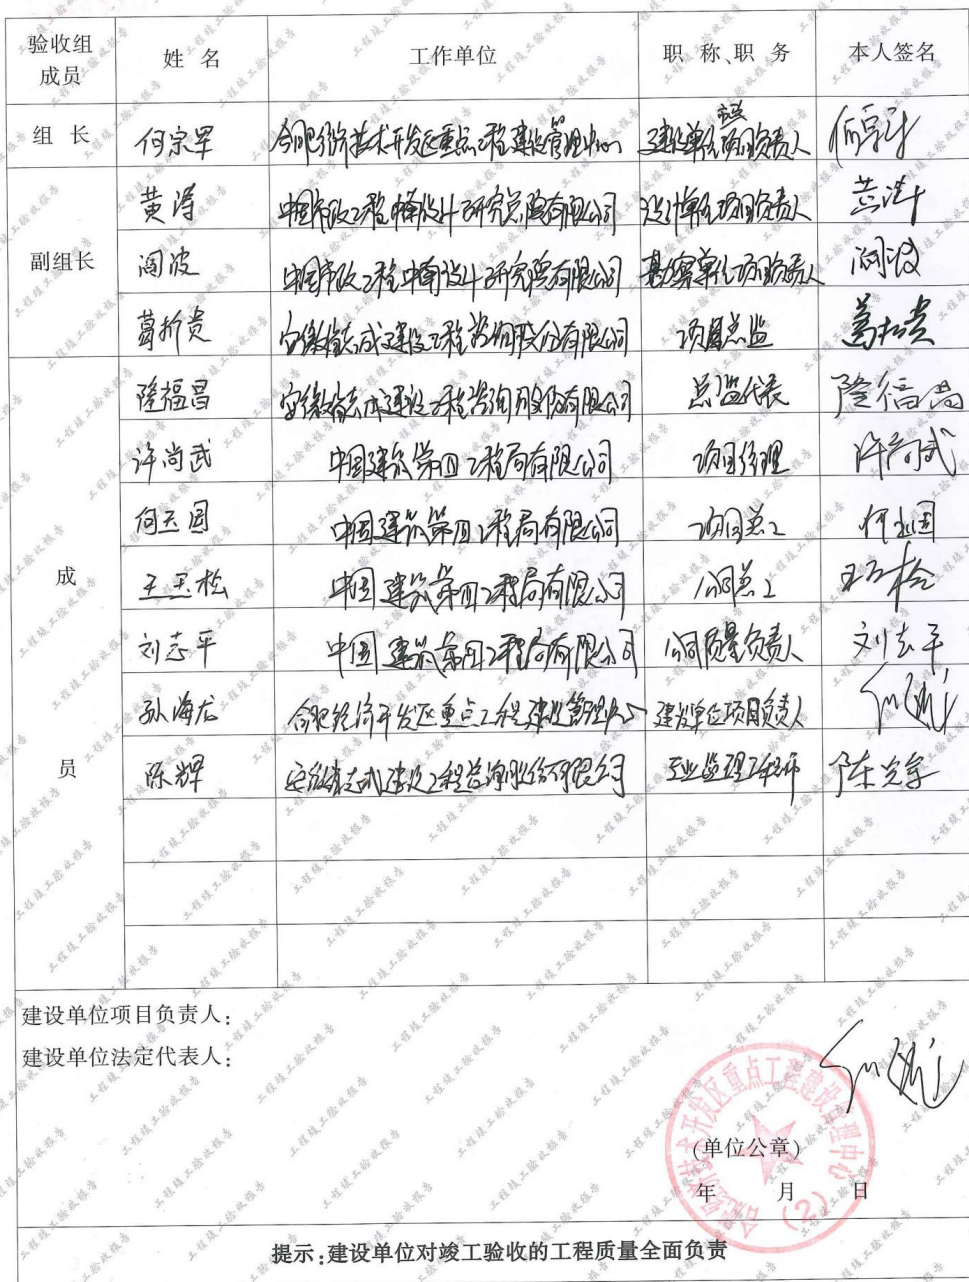 验收组成员 姓 名 工作单位 职 称、职 务 本人签名
组 长 何宗军 合肥经济技术开发区重点工程建设管理中心 建设单位项目负责人
副组长
黄涛 中国市政工程中南设计研究总院有限公司 设计单位项目负责人 黄涛
阎波 中国市政工程中南设计研究总院有限公司 勘察单位项目负责人 阎波
葛折贵 安徽省志成建设工程咨询股份有限公司 项目总监
成
员
隆福昌 安徽省志成建设工程咨询股份有限公司 总监代表 隆福昌
许尚武 中国建筑第四工程局有限公司 项目经理 许尚武
何玉国 中国建筑第四工程局有限公司 项目总工
王玉松 中国建筑第四工程局有限公司 公司总工
刘志平 中国建筑第四工程局有限公司 公司质量负责人 刘志平
孙海龙 合肥经济开发区重点工程建设管理中心 建设单位项目负责人
陈辉 安徽省志成建设工程咨询股份有限公司 专业监理工程师
建设单位项目负责人:
建设单位法定代表人:
合肥经济技术开发区重点工程建设管理中心
(2)
(单位公章)
年 月 日
提示:建设单位对竣工验收的工程质量全面负责
工程竣工验收报告